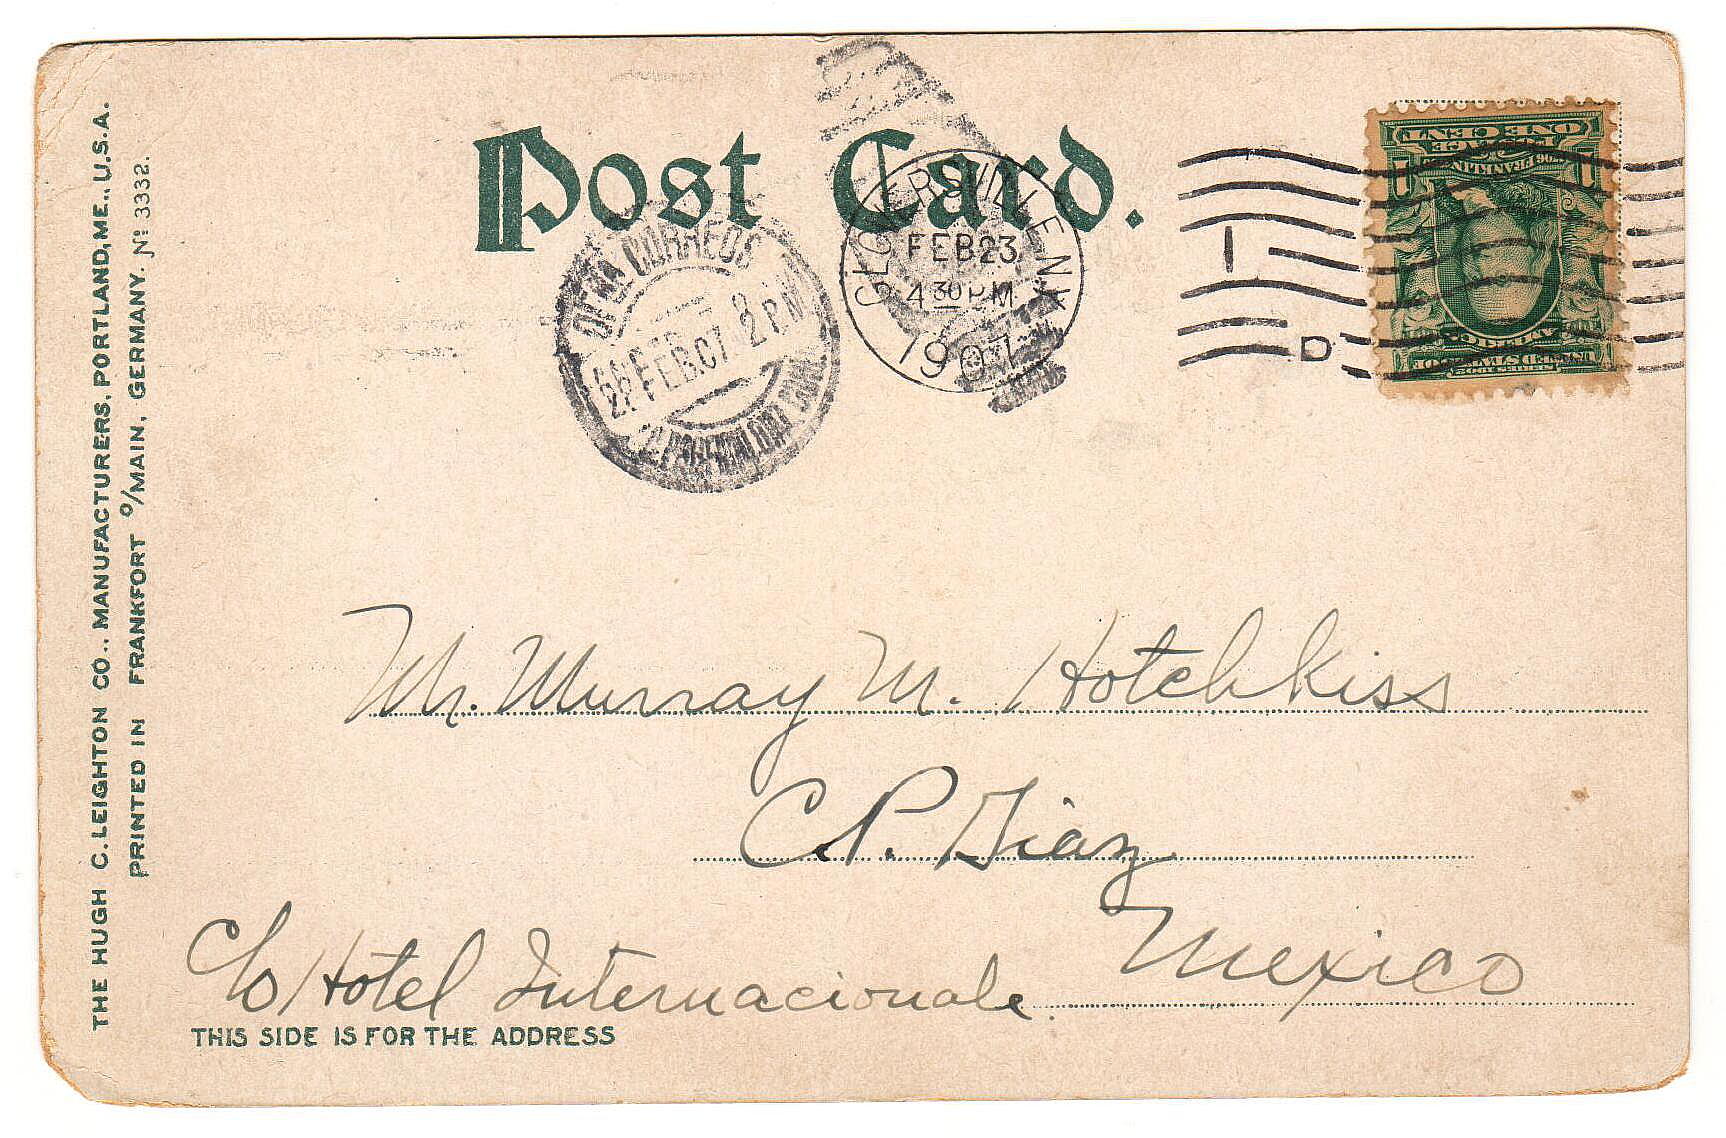 THE HUGH C. LEIGHTON CO., MANUFACTURERS, PORTLAND, ME., U.S.A.
PRINTED IN FRANKFORT o/MAIN, GERMANY. No 3332.
Post Card.
CORREOS
FEB 07 2 PM
GLOVERSVILLE N.Y.
FEB 23
4 30 PM
1907
1
D
ONE CENT
1 1
FRANKLIN
SERIES 1902
Mr. Murray M. Hotchkiss
C. P. Diaz
Mexico
c/o Hotel Internacionale.
THIS SIDE IS FOR THE ADDRESS